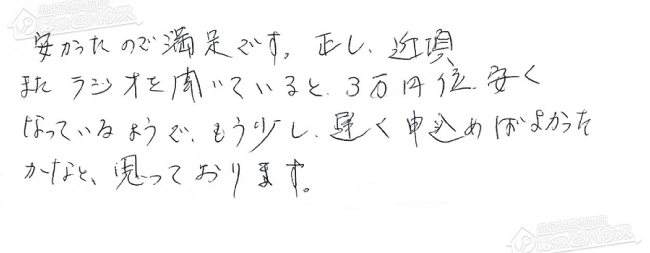 安かったので満足です。正し、近頃
またラジオを聞いていると、3万円位、安く
なっているようで、もう少し、遅く申込めばよかった
かなと、思っております。